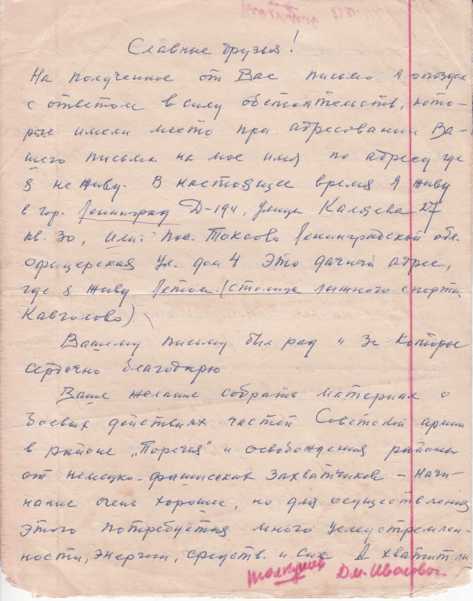 Славные друзья!
На полученное от Вас письмо я опоздал
с ответом в силу обстоятельств, кото-
рые имели место при адресовании Ва-
шего письма на мое имя по адресу где
я не живу. В настоящее время я живу
в гор. Ленинград Д-194, улица Каляева
кв. 30, или пос. Токсово Ленинградской обл.
Офицерская ул. дом 4 это дачный адрес,
где я живу летом. (столица лыжного спорта
Кавголово)
Вашему письму был рад и за которые
сердечно благодарю
Ваше желание собрать материал о
боевых действиях частей Советской армии
в районе „Поречья" и освобождения района
от немецко-фашистских захватчиков - Начи-
нание очень хорошее, но для осуществления
этого потребуется много целеустремлен-
ности, энергии, средств и сил. А хватит ли
Дм. Ивановы